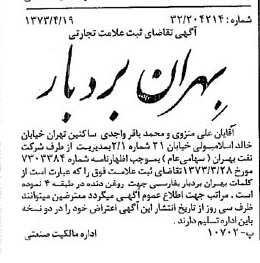 شماره: ۳۲/۲۰۴۲۱۴ ۱۳۷۳/۴/۱۹
آگهی تقاضای ثبت علامت تجارتی
بهران بردبار
آقایان علی منزوی و محمد باقر واجدی ساکنین تهران خیابان
خالد اسلامبولی خیابان ۲۱ شماره ۲/۱ بمدیریت از طرف شرکت
نفت بهران (سهامی عام) بموجب اظهارنامه شماره ۷۳۰۳۳۸۴
مورخ ۱۳۷۳/۳/۲۸ تقاضای ثبت علامت فوق را که عبارت است از
کلمات بهران بردبار بفارسی جهت روغن دنده در طبقه ۴ نموده
است. مراتب جهت اطلاع عموم آگهی میگردد معترضین میتوانند
ظرف سی روز از تاریخ انتشار این آگهی اعتراض خود را در دو نسخه
باین اداره تسلیم دارند.
پ-۱۰۷۰۲ اداره مالکیت صنعتی